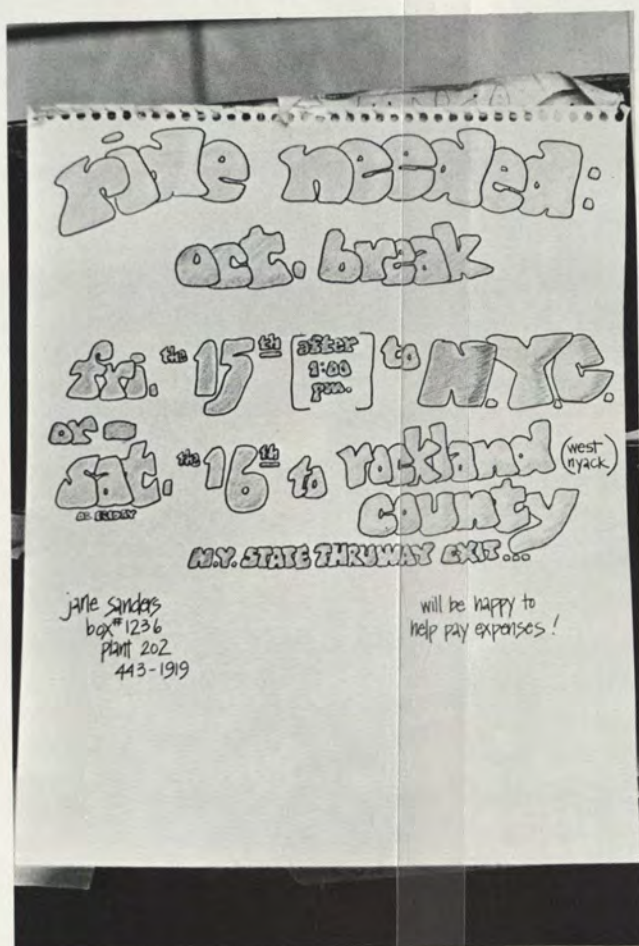 ride needed:
oct. break
fri. the 15th [after 1:00 pm.] to N.Y.C.
or -
sat. the 16th to rockland (west nyack)
county
N.Y. STATE THRUWAY EXIT...
jane sanders
box #1236
plant 202
443-1919
will be happy to
help pay expenses!